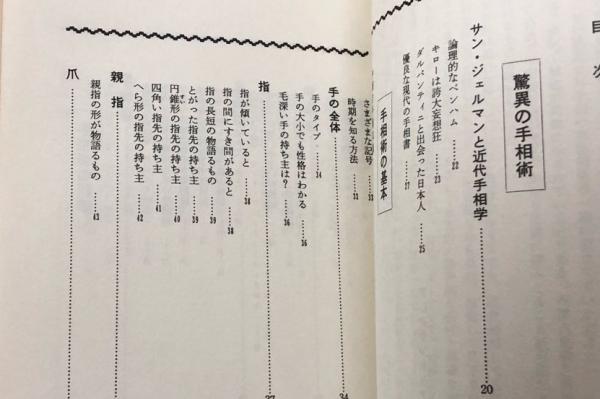 目次
驚異の手相術
サン・ジェルマンと近代手相学…………20
論理的なベンハム……22
キローは誇大妄想狂……23
ダルパンティニと出会った日本人……25
優良な現代の手相書……27
手相術の基本
さまざまな記号……32
時期を知る方法……32
手の全体…………34
手のタイプ……34
手の大小でも性格はわかる……36
毛深い手の持ち主は？……36
指…………37
指が傾いていると……38
指の間にすき間があると……38
指の長短の物語るもの……39
とがった指先の持ち主……39
円錐形の指先の持ち主……40
四角い指先の持ち主……41
へら形の指先の持ち主……42
親指…………
親指の形が物語るもの……43
爪…………